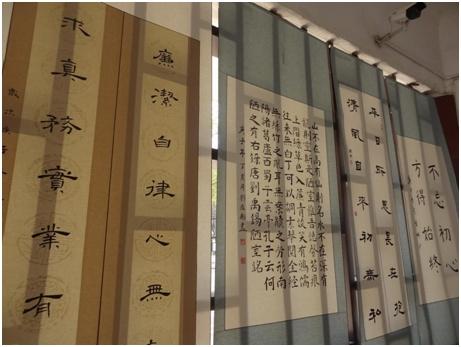 廉潔自律心無
求真務實業有
山不在高有仙則名水不在深有
龍則靈斯是陋室惟吾德馨苔痕
上階綠草色入簾青談笑有鴻儒
往來無白丁可以調素琴閱金經
無絲竹之亂耳無案牘之勞形南
陽諸葛廬西蜀子雲亭孔子云何
陋之有右錄唐劉禹錫陋室銘
平日所思在抱
清風自來初
不忘初心
方得始終